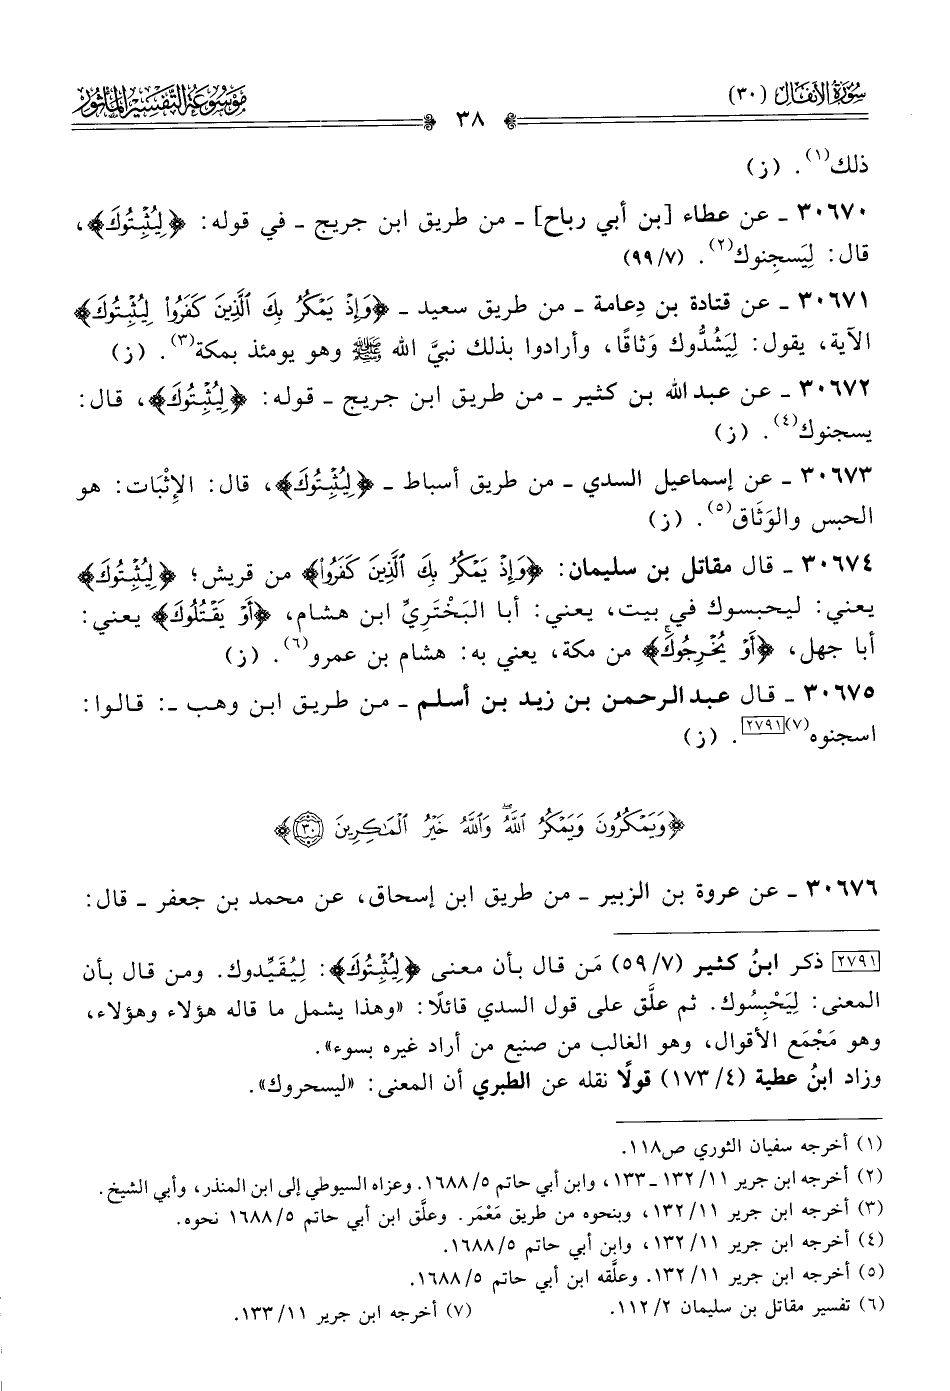 سُورَةُ الأَنفَال (٣٠)
٣٨
مَوْسُوعَةُ التَّفْسِيرِ المَأثُور
ذلك(١). (ز)
٣٠٦٧٠ ـ عن عطاء [بن أبي رباح] ـ من طريق ابن جريج ـ في قوله: ﴿لِيُثْبِتُوكَ﴾،
قال: لِيَسجِنوك(٢). (٩٩/٧)
٣٠٦٧١ ـ عن قتادة بن دِعامة ـ من طريق سعيد ـ ﴿وَإِذْ يَمْكُرُ بِكَ ٱلَّذِينَ كَفَرُوا۟ لِيُثْبِتُوكَ﴾
الآية، يقول: لِيَشُدُّوك وَثاقًا، وأرادوا بذلك نبيَّ الله ﷺ وهو يومئذ بمكة(٣). (ز)
٣٠٦٧٢ ـ عن عبد الله بن كثير ـ من طريق ابن جريج ـ قوله: ﴿لِيُثْبِتُوكَ﴾، قال:
يسجنوك(٤). (ز)
٣٠٦٧٣ ـ عن إسماعيل السدي ـ من طريق أسباط ـ ﴿لِيُثْبِتُوكَ﴾، قال: الإِثْبَات: هو
الحبس والوَثَاق(٥). (ز)
٣٠٦٧٤ ـ قال مقاتل بن سليمان: ﴿وَإِذْ يَمْكُرُ بِكَ ٱلَّذِينَ كَفَرُوا۟﴾ من قريش؛ ﴿لِيُثْبِتُوكَ﴾
يعني: ليحبسوك في بيت، يعني: أبا البَخْتَرِيِّ ابن هشام، ﴿أَوْ يَقْتُلُوكَ﴾ يعني:
أبا جهل، ﴿أَوْ يُخْرِجُوكَۚ﴾ من مكة، يعني به: هشام بن عمرو(٦). (ز)
٣٠٦٧٥ ـ قال عبد الرحمن بن زيد بن أسلم ـ من طريق ابن وهب ـ: قالوا:
اسجنوه(٧)[٢٧٩١]. (ز)
﴿وَيَمْكُرُونَ وَيَمْكُرُ ٱللَّهُۖ وَٱللَّهُ خَيْرُ ٱلْمَـٰكِرِينَ ٣٠﴾
٣٠٦٧٦ ـ عن عروة بن الزبير ـ من طريق ابن إسحاق، عن محمد بن جعفر ـ قال:
[٢٧٩١] ذكر ابنُ كثير (٥٩/٧) مَن قال بأن معنى ﴿لِيُثْبِتُوكَ﴾: لِيُقَيِّدوك. ومن قال بأن
المعنى: لِيَحْبِسُوك. ثم علَّق على قول السدي قائلًا: «وهذا يشمل ما قاله هؤلاء وهؤلاء،
وهو مَجْمَع الأقوال، وهو الغالب من صنيع من أراد غيره بسوء».
وزاد ابنُ عطية (٤/ ١٧٣) قولًا نقله عن الطبري أن المعنى: «ليسحروك».
(١) أخرجه سفيان الثوري ص١١٨.
(٢) أخرجه ابن جرير ١١/ ١٣٢ ـ ١٣٣، وابن أبي حاتم ٥/ ١٦٨٨. وعزاه السيوطي إلى ابن المنذر، وأبي الشيخ.
(٣) أخرجه ابن جرير ١١/ ١٣٢، وبنحوه من طريق مَعْمَر. وعلَّق ابن أبي حاتم ٥/ ١٦٨٨ نحوه.
(٤) أخرجه ابن جرير ١١/ ١٣٢، وابن أبي حاتم ٥/ ١٦٨٨.
(٥) أخرجه ابن جرير ١١/ ١٣٢. وعلَّقه ابن أبي حاتم ٥/ ١٦٨٨.
(٦) تفسير مقاتل بن سليمان ٢/ ١١٢.
(٧) أخرجه ابن جرير ١١/ ١٣٣.